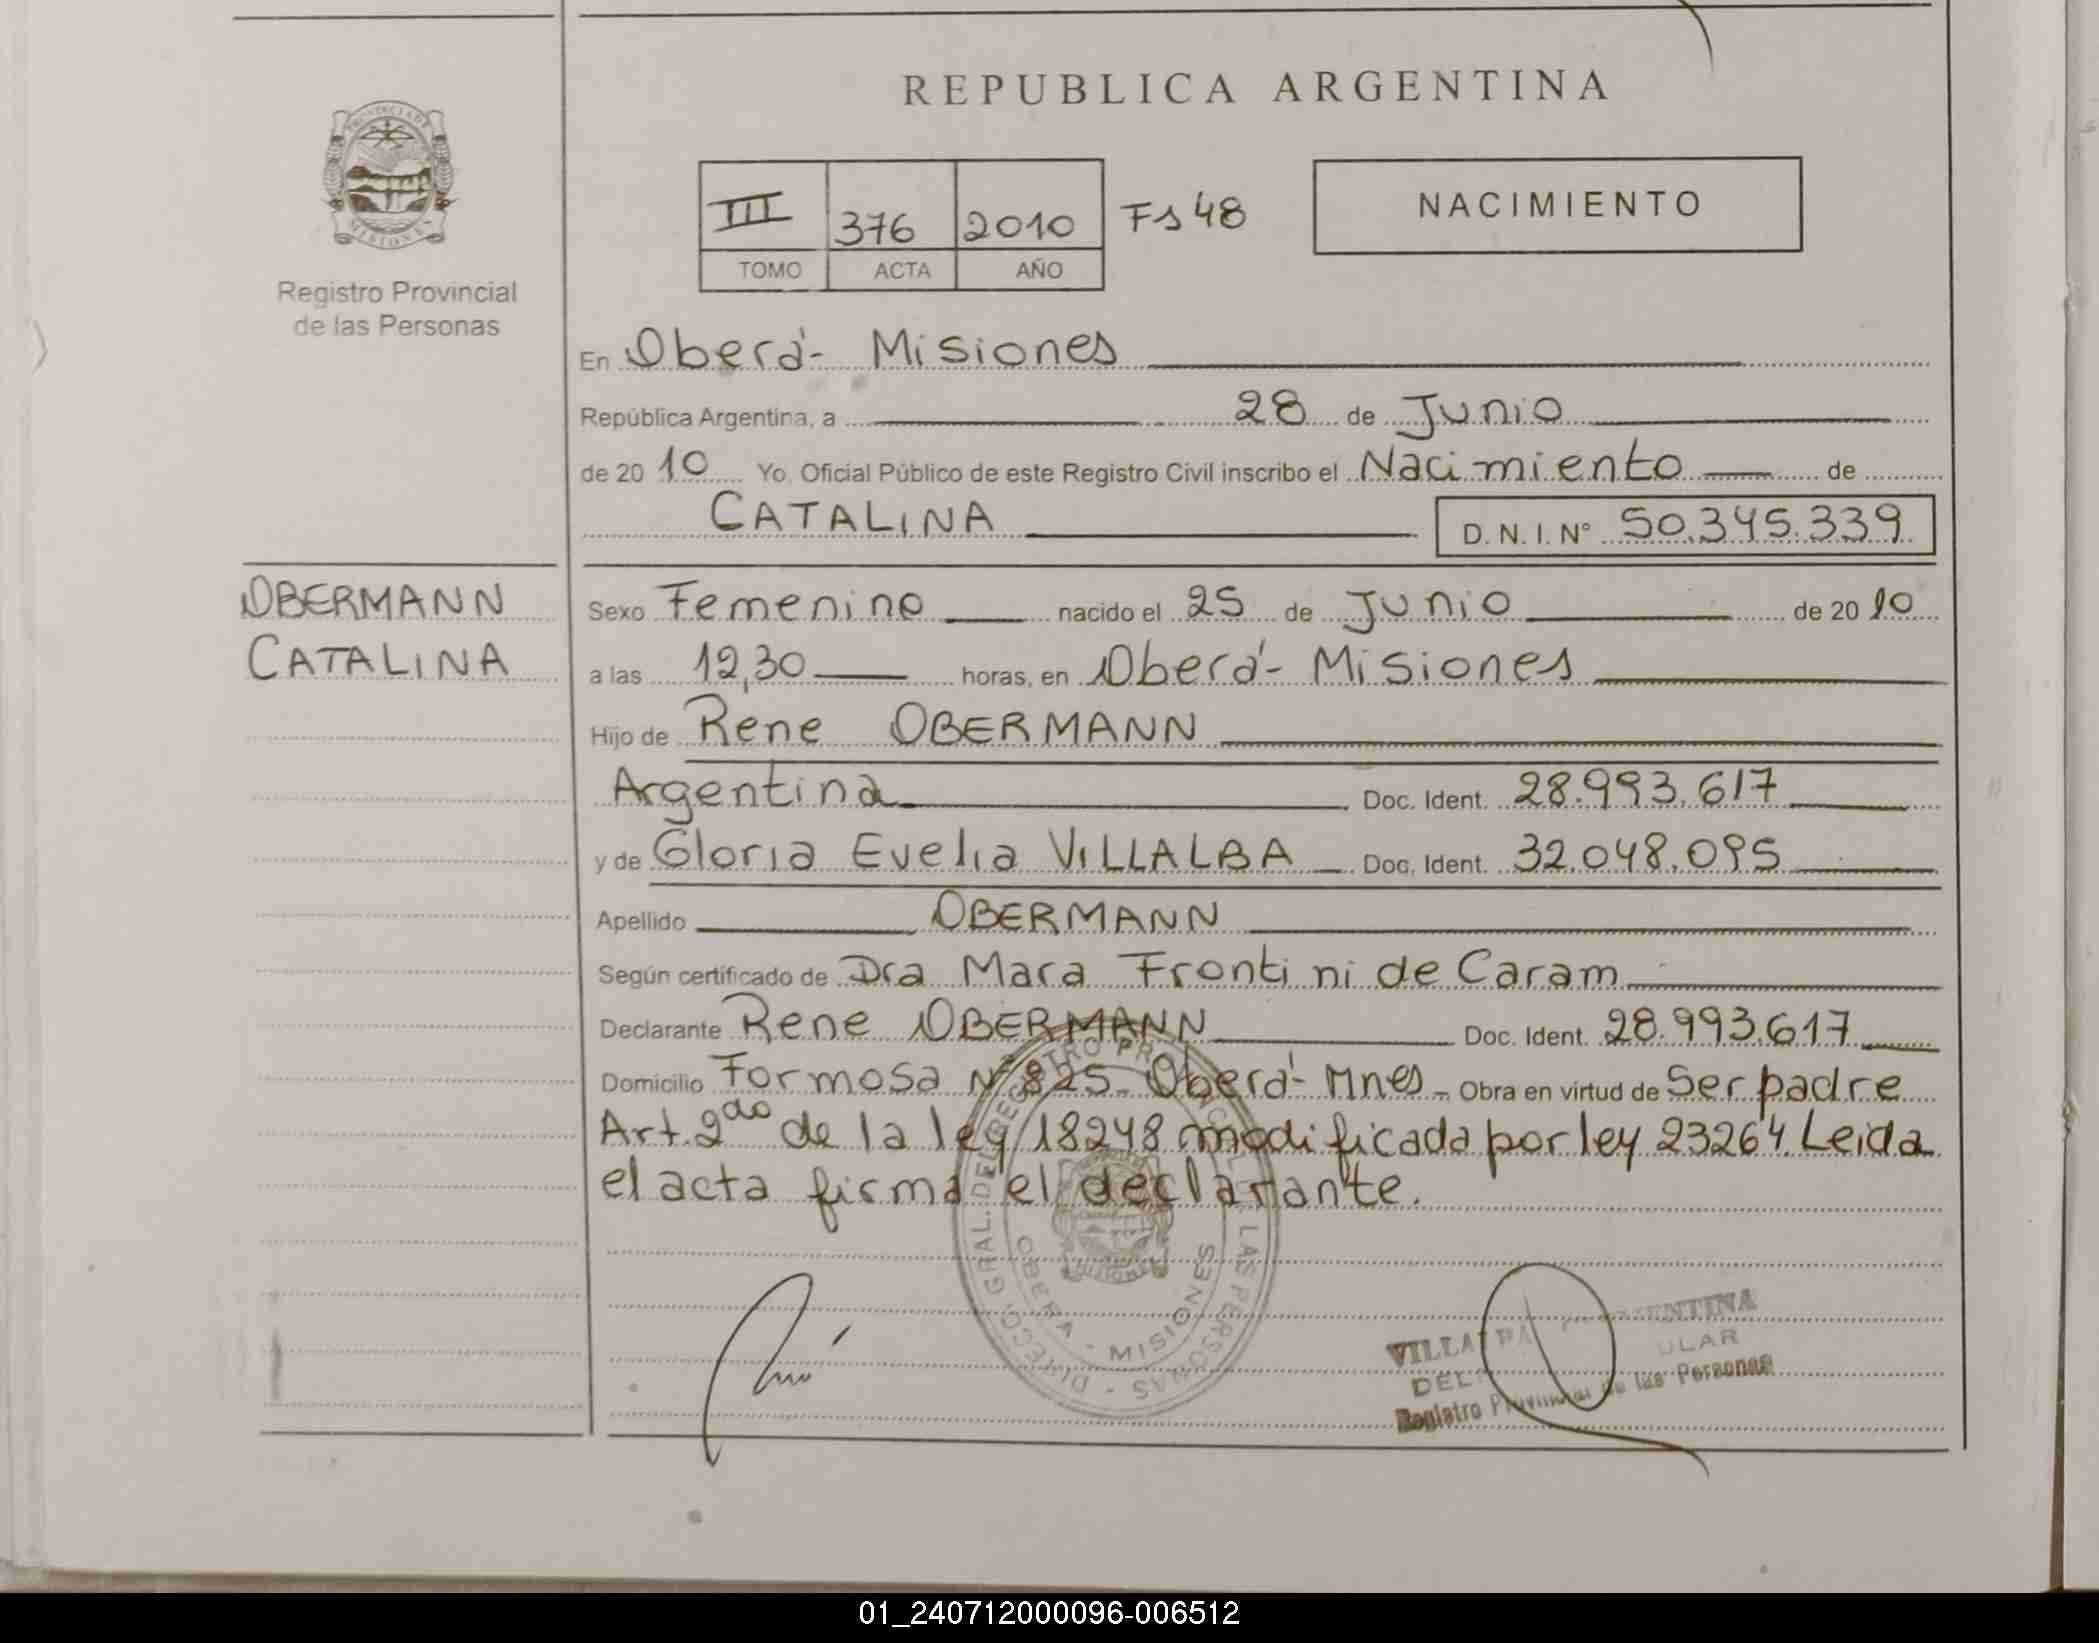 REPUBLICA ARGENTINA
PROVINCIA DE
MISIONES
Registro Provincial
de las Personas
III 376 2010 Fs 48
TOMO ACTA AÑO
NACIMIENTO
En Oberá- Misiones
República Argentina, a 28 de Junio
de 20 10 Yo, Oficial Público de este Registro Civil inscribo el Nacimiento de
CATALINA D. N. I. N° 50.345.339
OBERMANN
CATALINA
Sexo Femenino nacido el 25 de Junio de 20 10
a las 12,30 horas, en Oberá- Misiones
Hijo de Rene OBERMANN
Argentina Doc. Ident. 28.993.617
y de Gloria Evelia VILLALBA Doc. Ident. 32.048.095
Apellido OBERMANN
Según certificado de Dra Mara Frontini de Caram
Declarante Rene OBERMANN Doc. Ident. 28.993.617
Domicilio Formosa N° 825- Oberá- Mnes- Obra en virtud de Ser padre
Art. 2do de la ley 18248 modificada por ley 23264. Leida
el acta firma el declarante.
OBERA - MISIONES
LAS PERSONAS
Registro Provincial de las Personas
01_240712000096-006512